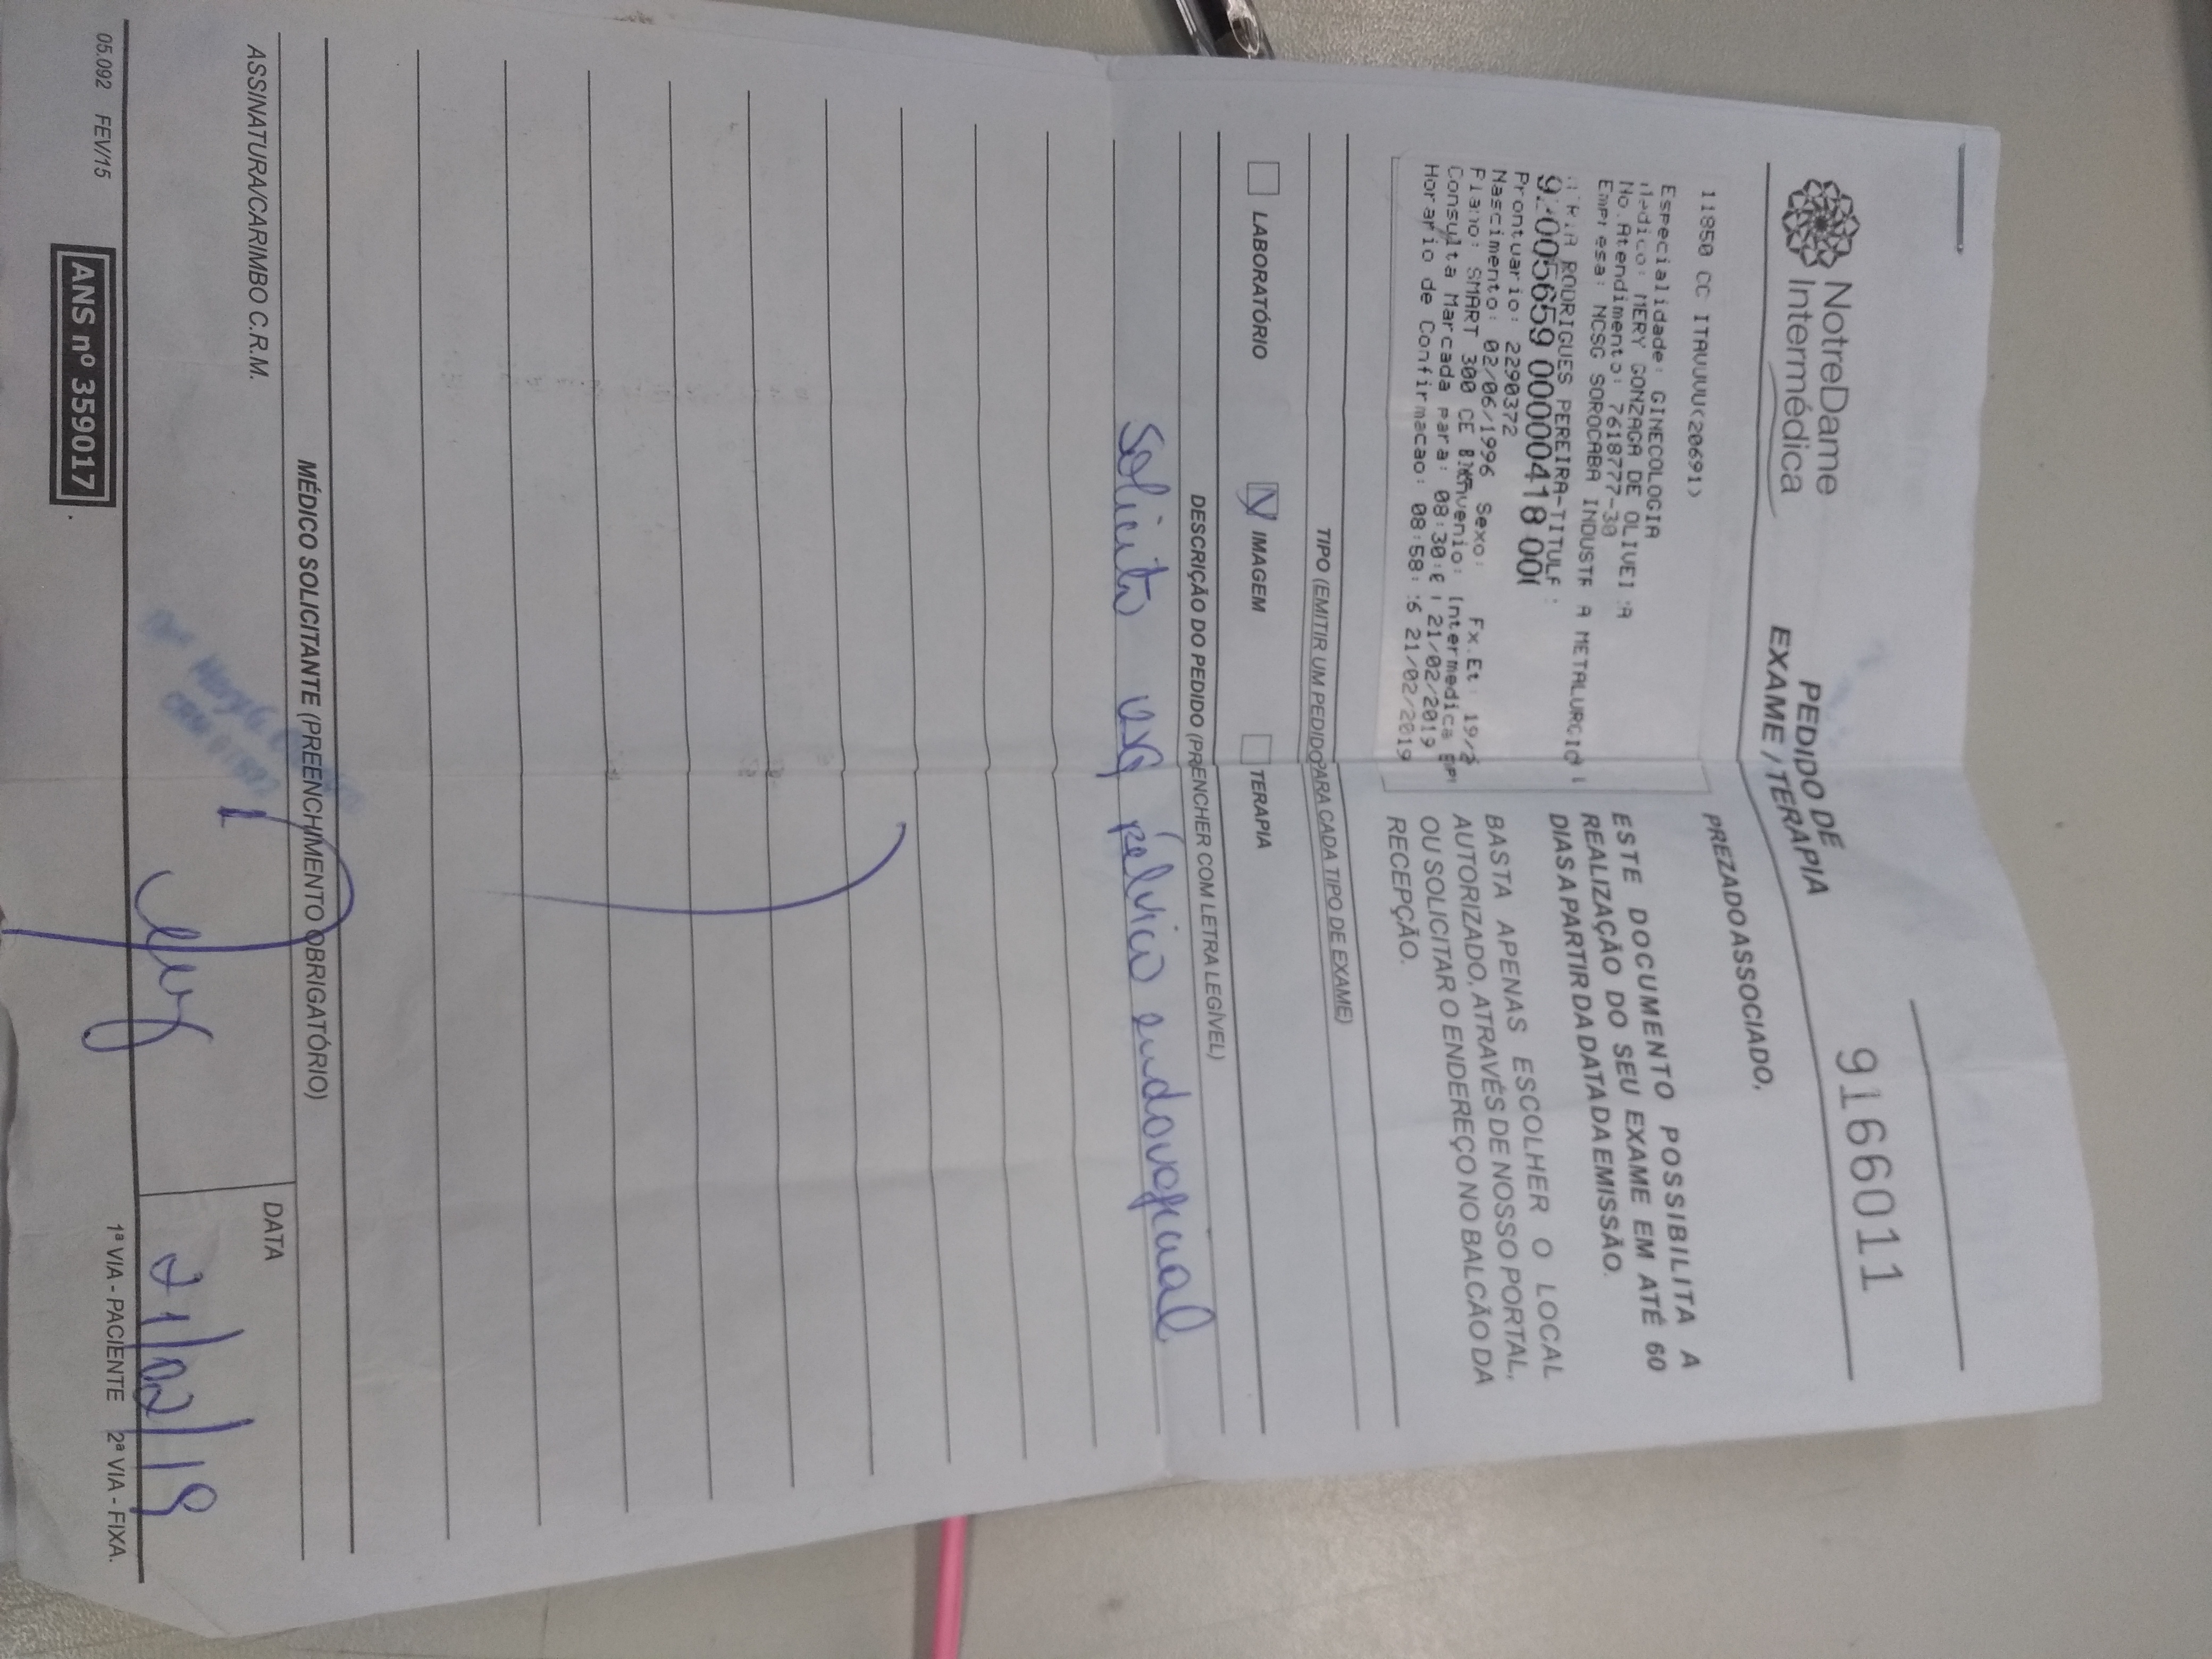 NotreDame
Intermédica
PEDIDO DE
EXAME / TERAPIA
9166011
11850 CC ITAVUVU(20691)
Especialidade: GINECOLOGIA
Medico: MERY GONZAGA DE OLIVEI
No.Atendimento: 7618777-30
Empresa: NCSG SOROCABA INDUSTR A METALURGIC
RODRIGUES PEREIRA-TITULF
Prontuario: 2290372
Nascimento: 02/06/1996 Sexo: Fx.Et: 19/2
Plano: SMART 300 CE Intermedica
Consulta Marcada para: 08:30: 21/02/2019
Horario de Confirmacao: 08:58: 6 21/02/2019
PREZADO ASSOCIADO,
ESTE DOCUMENTO POSSIBILITA A
REALIZAÇÃO DO SEU EXAME EM ATÉ 60
DIAS A PARTIR DA DATA DA EMISSÃO.
BASTA APENAS ESCOLHER O LOCAL
AUTORIZADO, ATRAVÉS DE NOSSO PORTAL,
OU SOLICITAR O ENDEREÇO NO BALCÃO DA
RECEPÇÃO.
TIPO (EMITIR UM PEDIDO PARA CADA TIPO DE EXAME)
LABORATÓRIO IMAGEM TERAPIA
DESCRIÇÃO DO PEDIDO (PREENCHER COM LETRA LEGÍVEL)
Solicito USG pélvico endovaginal
MÉDICO SOLICITANTE (PREENCHIMENTO OBRIGATÓRIO)
ASSINATURA/CARIMBO C.R.M.
DATA
21/02/19
05.092 FEV/15
ANS nº 359017
1ª VIA - PACIENTE 2ª VIA - FIXA.